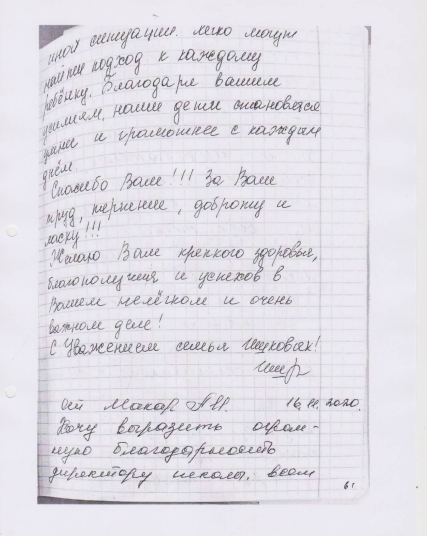 иной ситуации. легко могут
найти подход к каждому
ребёнку. Благодаря вашим
усилиям, наши дети становятся
умнее и грамотнее с каждым
днём
Спасибо Вам!!! За Ваш
труд, терпение, доброту и
ласку!!!
Желаю Вам крепкого здоровья,
благополучия и успехов в
Вашем нелёгком и очень
важном деле!
С Уважением семья
От Макар А.И. 16.11.2020.
Хочу выразить огром-
ную благодарность
директору школы, всем
61